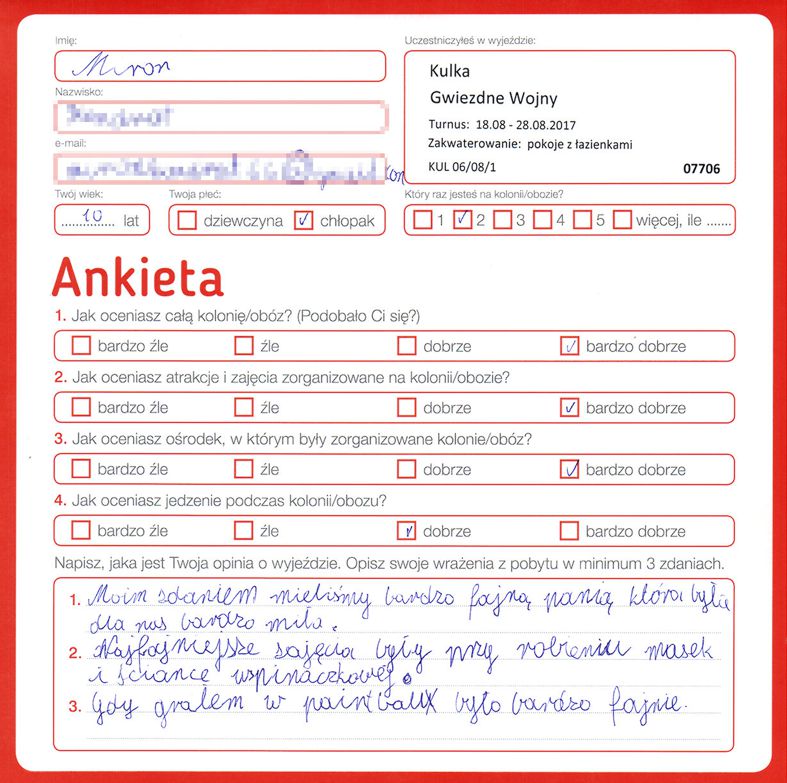 Imię:
Miron
Uczestniczyłeś w wyjeździe:
Kulka
Gwiezdne Wojny
Turnus: 18.08 - 28.08.2017
Zakwaterowanie: pokoje z łazienkami
KUL 06/08/1 07706
Nazwisko:
e-mail:
Twój wiek:
10 lat
Twoja płeć:
dziewczyna ✓ chłopak
Który raz jesteś na kolonii/obozie?
1 ✓ 2 3 4 5 więcej, ile .......
Ankieta
1. Jak oceniasz całą kolonię/obóz? (Podobało Ci się?)
bardzo źle źle dobrze ✓ bardzo dobrze
2. Jak oceniasz atrakcje i zajęcia zorganizowane na kolonii/obozie?
bardzo źle źle dobrze ✓ bardzo dobrze
3. Jak oceniasz ośrodek, w którym były zorganizowane kolonie/obóz?
bardzo źle źle dobrze ✓ bardzo dobrze
4. Jak oceniasz jedzenie podczas kolonii/obozu?
bardzo źle źle ✓ dobrze bardzo dobrze
Napisz, jaka jest Twoja opinia o wyjeździe. Opisz swoje wrażenia z pobytu w minimum 3 zdaniach.
1. Moim zdaniem mieliśmy bardzo fajną panią która była
dla nas bardzo miła.
2. Najfajniejsze zajęcia były przy robieniu masek
i ściance wspinaczkowej.
3. Gdy grałem w paintball było bardzo fajnie.